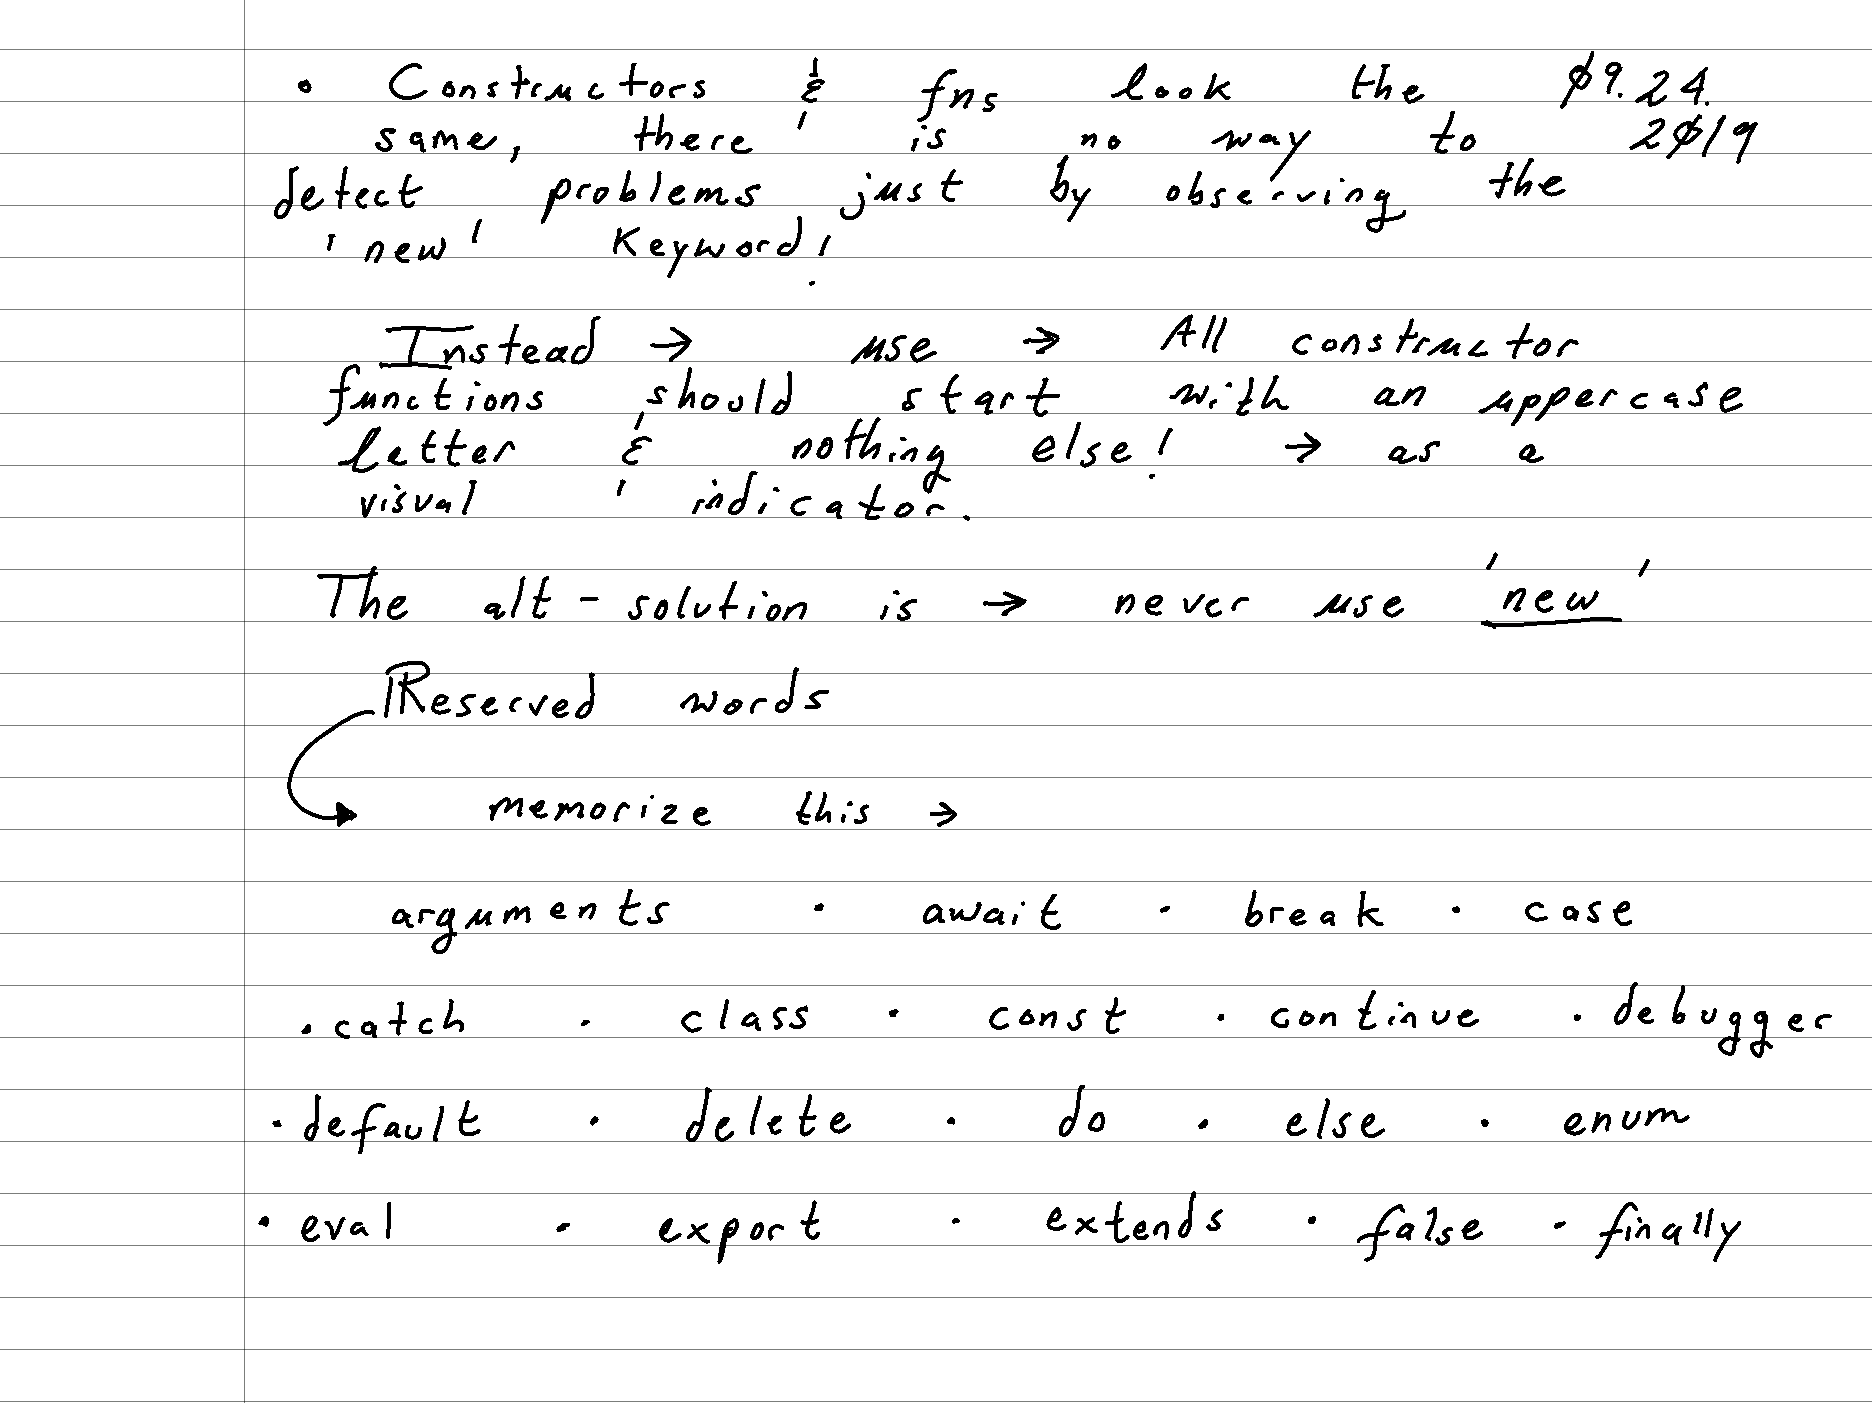 • Constructors & fns look the 09.24.
same, there is no way to 2019
detect problems just by observing the
'new' keyword!
Instead → use → All constructor
functions should start with an uppercase
letter & nothing else! → as a
visual indicator.
The alt-solution is → never use 'new'
Reserved words
memorize this →
arguments · await · break · case
· catch · class · const · continue · debugger
· default · delete · do · else · enum
· eval · export · extends · false · finally